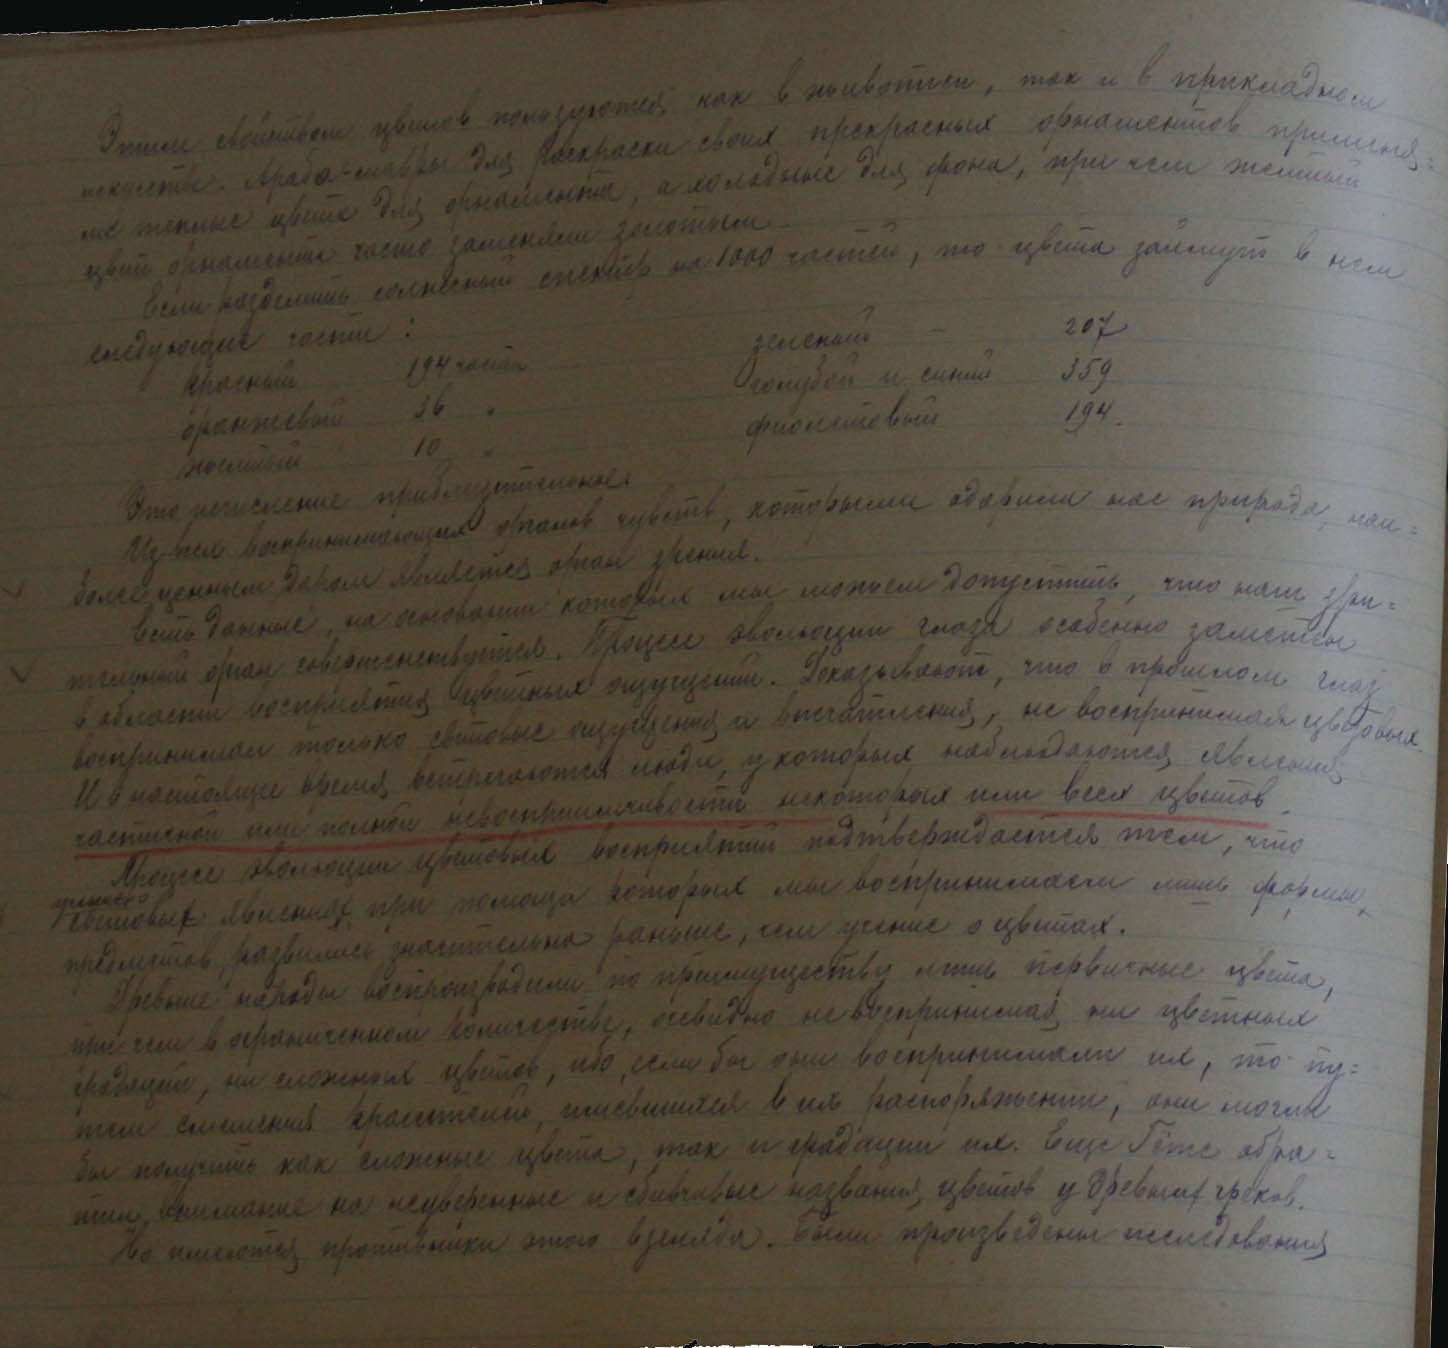 Этим свойством цветов пользуются как в живописи, так и в прикладном
искусстве. Арабо-мавры для раскраски своих прекрасных орнаментов применя=
ли теплые цвета для орнамента, а холодные для фона, при чем желтый
цвет орнамента часто заменяли золотым.
Если разделить солнечный спектр на 1000 частей, то цвета займут в нем
следующие части:
красный 194 части зеленый – 207
оранжевый 36 " голубой и синий 359
желтый 10 " фиолетовый 194.
Это исчисление приблизительное.
Из всех воспринимающих органов чувств, которыми одарила нас природа, наи=
более ценным даром является орган зрения.
Есть данные, на основании которых мы можем допустить, что наш зри=
тельный орган совершенствуется. Процесс эволюции глаза особенно заметен
в области восприятия цветных ощущений. Доказывают, что в прошлом глаз
воспринимал только световые ощущения и впечатления, не воспринимая цветовых.
И в настоящее время встречаются люди, у которых наблюдаются явления
частичной или полной невосприимчивости некоторых или всех цветов.
Процесс эволюции цветовых восприятий подтверждается тем, что
световых явлениях, при помощи которых мы воспринимаем лишь формы
предметов, развилось значительно раньше, чем учение о цветах.
Древние народы воспроизводили по преимуществу лишь первичные цвета,
при чем в ограниченном количестве, очевидно не воспринимая ни цветных
градаций, ни сложных цветов, ибо, если бы они воспринимали их, то пу=
тем смешения красителей, имевшихся в их распоряжении, они могли
бы получить как сложные цвета, так и градации их. Еще Гёте обра=
тил внимание на неуверенные и сбивчивые названия цветов у древних греков.
Но имеются противники этого взгляда. Были произведены исследования